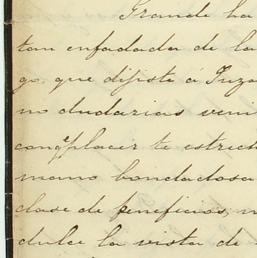 Grande ha
tan enfadada de la
go, que dijiste á Suza
no dudarias veni
con qᵉ placer te estrech
mano bondadosa
clase de beneficios, n
dulce la vista de